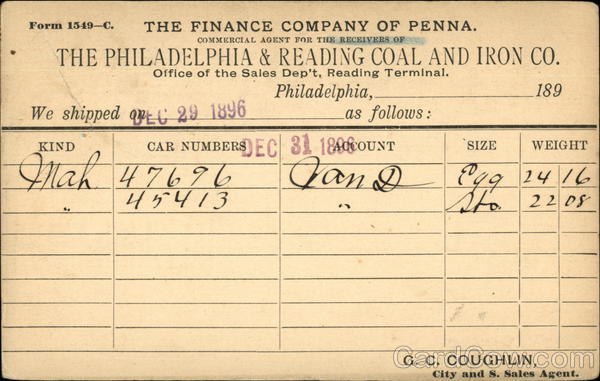 Form 1549—C. THE FINANCE COMPANY OF PENNA.
COMMERCIAL AGENT FOR THE RECEIVERS OF
THE PHILADELPHIA & READING COAL AND IRON CO.
Office of the Sales Dep't, Reading Terminal.
Philadelphia, 189
We shipped on DEC 29 1896 as follows:
DEC 31 1896
KIND CAR NUMBERS ACCOUNT SIZE WEIGHT
Mah 47696 Van D Egg 24 16
" 45413 " Sto. 22 08
G. C. COUGHLIN,
City and S. Sales Agent.
CardCow.com